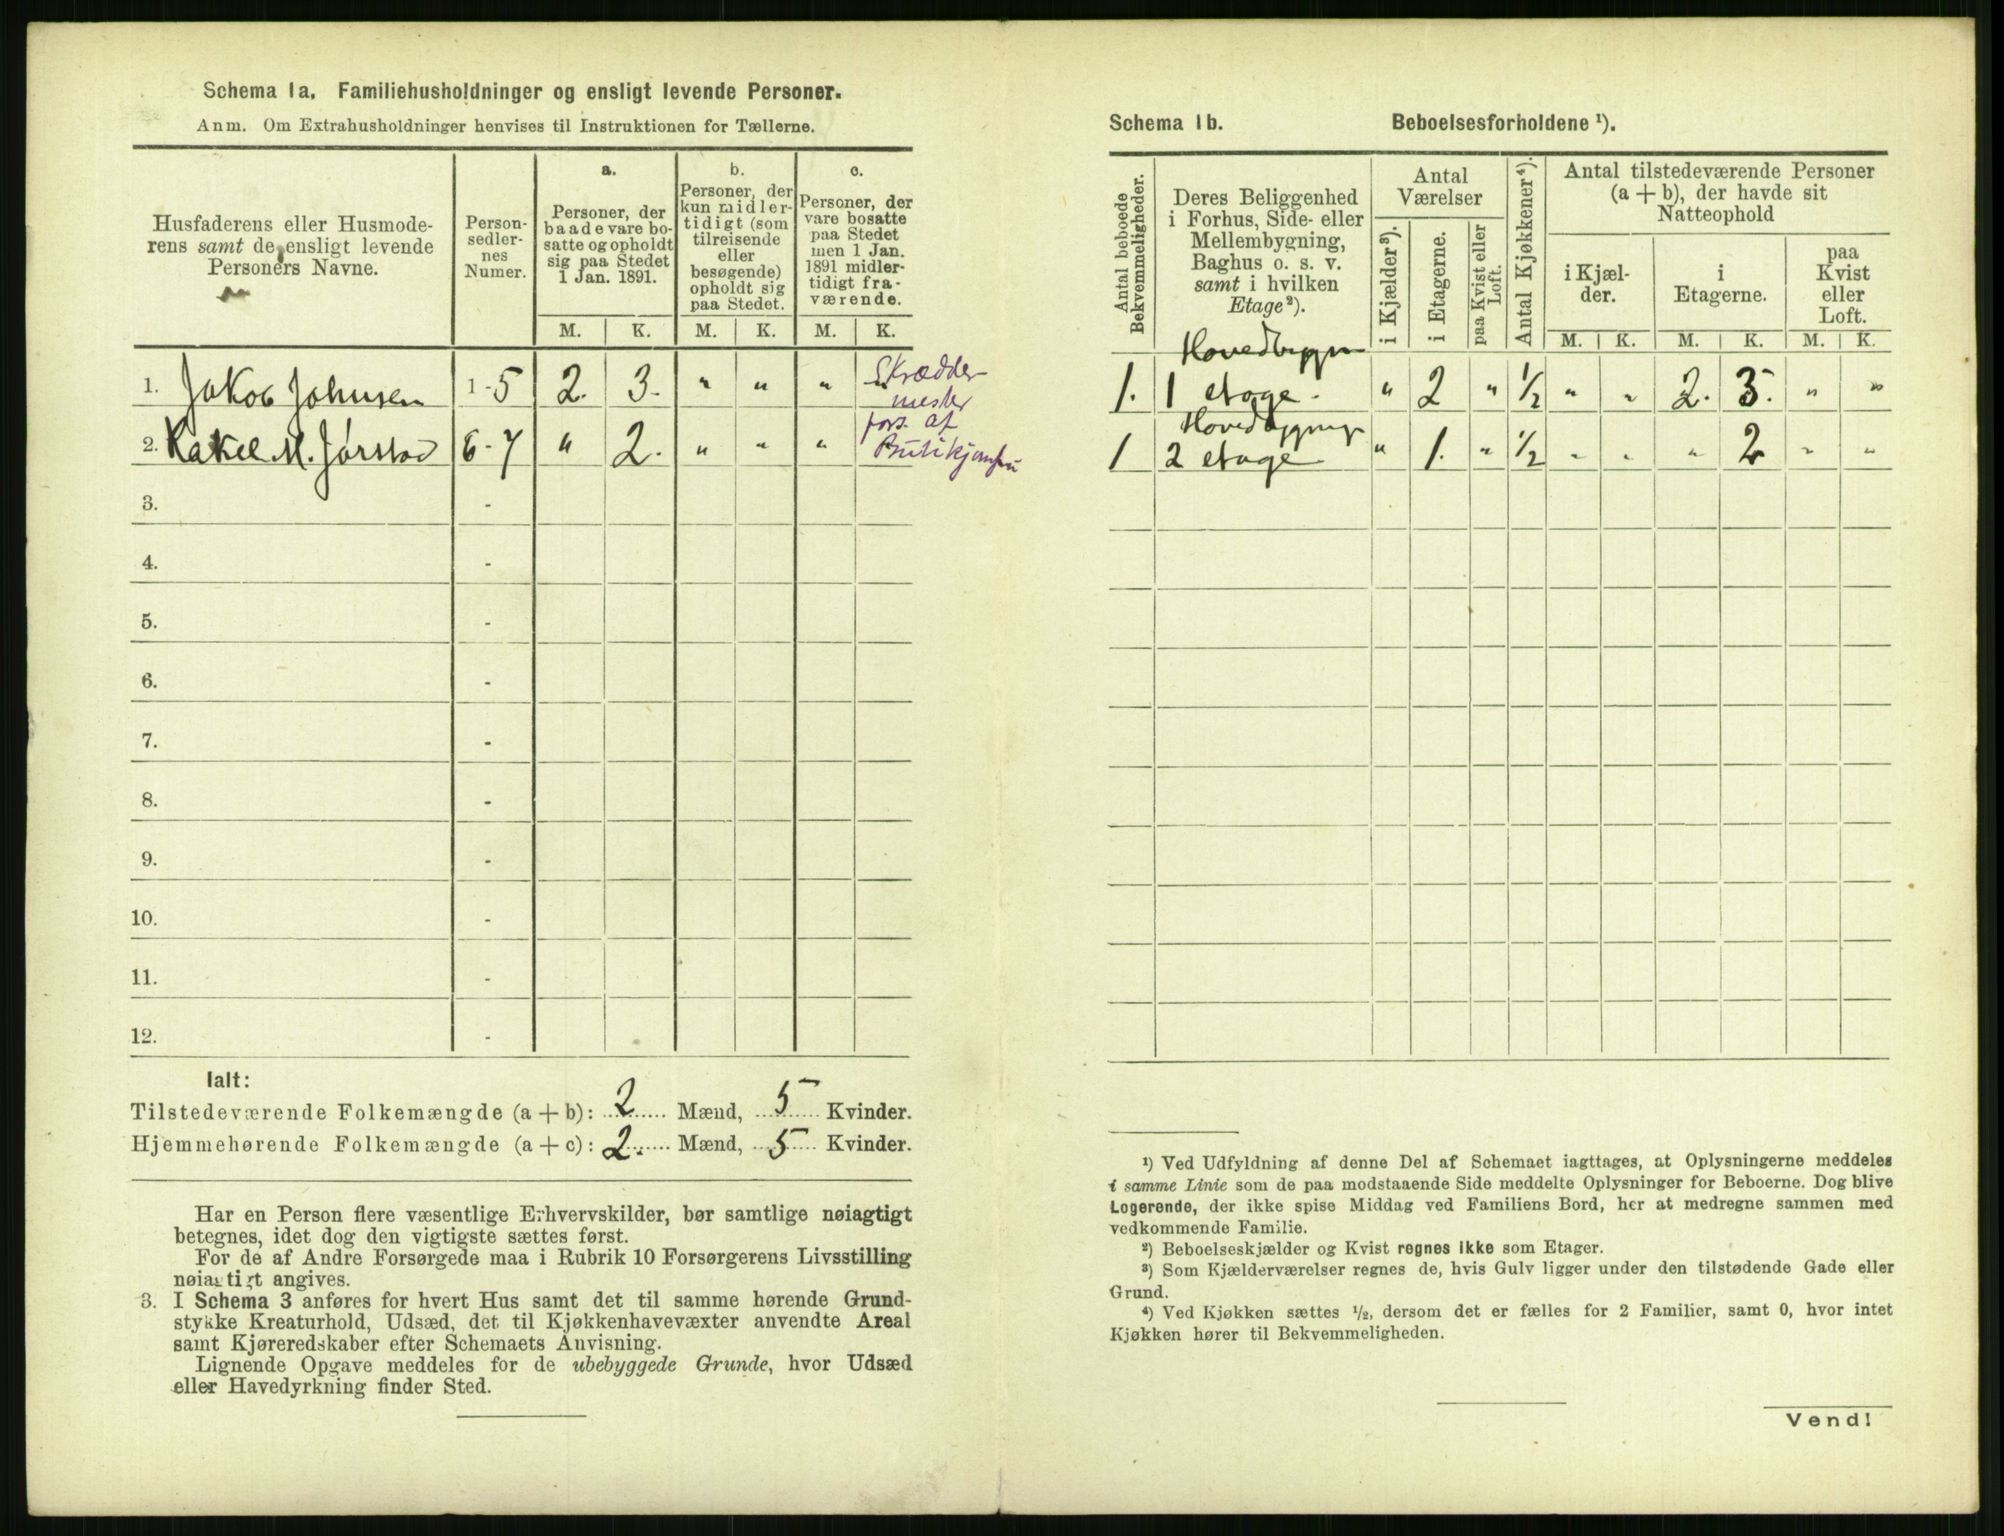 Schema 1a. Familiehusholdninger og ensligt levende Personer.
Anm. Om Extrahusholdninger henvises til Instruktionen for Tællerne.
Husfaderens eller Husmode-
rens samt de ensligt levende
Personers Navne.
Person-
sedler-
nes
Numer.
a.
Personer, der
baade vare bo-
satte og opholdt
sig paa Stedet
1 Jan. 1891.
b.
Personer, der
kun midler-
tidigt (som
tilreisende
eller
besøgende)
opholdt sig
paa Stedet.
c.
Personer, der
vare bosatte
paa Stedet
men 1 Jan.
1891 midler-
tidigt fra-
værende.
M. K. M. K. M. K.
1. Jakob Johnsen 1 - 5 2. 3. " " " " Skrædder
mester
2. Rakel M. Jørstad 6 - 7 " 2. " " " fors. af
Butikjomfru
3. -
4. -
5. -
6. -
7. -
8. -
9. -
10. -
11. -
12. -
Ialt:
Tilstedeværende Folkemængde (a + b): 2 Mænd, 5 Kvinder.
Hjemmehørende Folkemængde (a + c): 2. Mænd, 5 Kvinder.
Har en Person flere væsentlige Erhvervskilder, bør samtlige nøiagtigt
betegnes, idet dog den vigtigste sættes først.
For de af Andre Forsørgede maa i Rubrik 10 Forsørgerens Livsstilling
nøiagtigt angives.
3. I Schema 3 anføres for hvert Hus samt det til samme hørende Grund-
stykke Kreaturhold, Udsæd, det til Kjøkkenhavevæxter anvendte Areal
samt Kjøreredskaber efter Schemaets Anvisning.
Lignende Opgave meddeles for de ubebyggede Grunde, hvor Udsæd
eller Havedyrkning finder Sted.
Schema 1b. Beboelsesforholdene ¹).
Antal beboede
Bekvemmeligheder.
Deres Beliggenhed
i Forhus, Side- eller
Mellembygning,
Baghus o. s. v.
samt i hvilken
Etage²).
Antal
Værelser
i Kjælder³).
i Etagerne.
paa Kvist eller
Loft.
Antal Kjøkkener⁴).
Antal tilstedeværende Personer
(a + b), der havde sit
Natteophold
i Kjæl-
der.
i
Etagerne.
paa
Kvist
eller
Loft.
M. K. M. K. M. K.
Hovedbygn
1. 1 etage. " 2 " ½ " " 2. 3. " "
Hovedbygning
1 2 etage " 1. " ½ " " " 2 " "
¹) Ved Udfyldning af denne Del af Schemaet iagttages, at Oplysningerne meddeles
i samme Linie som de paa modstaaende Side meddelte Oplysninger for Beboerne. Dog blive
Logerende, der ikke spise Middag ved Familiens Bord, her at medregne sammen med
vedkommende Familie.
²) Beboelseskjælder og Kvist regnes ikke som Etager.
³) Som Kjælderværelser regnes de, hvis Gulv ligger under den tilstødende Gade eller
Grund.
⁴) Ved Kjøkken sættes ½, dersom det er fælles for 2 Familier, samt 0, hvor intet
Kjøkken hører til Bekvemmeligheden.
Vend!